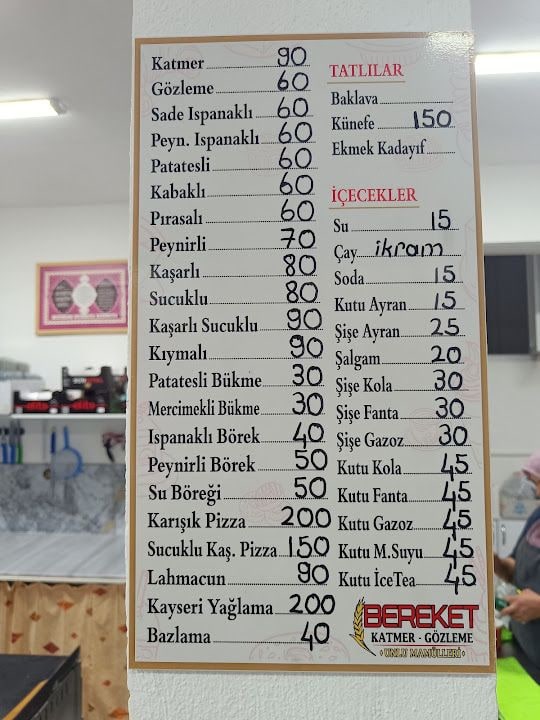 Katmer 90
Gözleme 60
Sade Ispanaklı 60
Peyn. Ispanaklı 60
Patatesli 60
Kabaklı 60
Pırasalı 60
Peynirli 70
Kaşarlı 80
Sucuklu 80
Kaşarlı Sucuklu 90
Kıymalı 90
Patatesli Bükme 30
Mercimekli Bükme 30
Ispanaklı Börek 40
Peynirli Börek 50
Su Böreği 50
Karışık Pizza 200
Sucuklu Kaş. Pizza 150
Lahmacun 90
Kayseri Yağlama 200
Bazlama 40
TATLILAR
Baklava
Künefe 150
Ekmek Kadayıf
İÇECEKLER
Su 15
Çay ikram
Soda 15
Kutu Ayran 15
Şişe Ayran 25
Şalgam 20
Şişe Kola 30
Şişe Fanta 30
Şişe Gazoz 30
Kutu Kola 45
Kutu Fanta 45
Kutu Gazoz 45
Kutu M.Suyu 45
Kutu İceTea 45
BEREKET
KATMER - GÖZLEME
• UNLU MAMÜLLERİ •